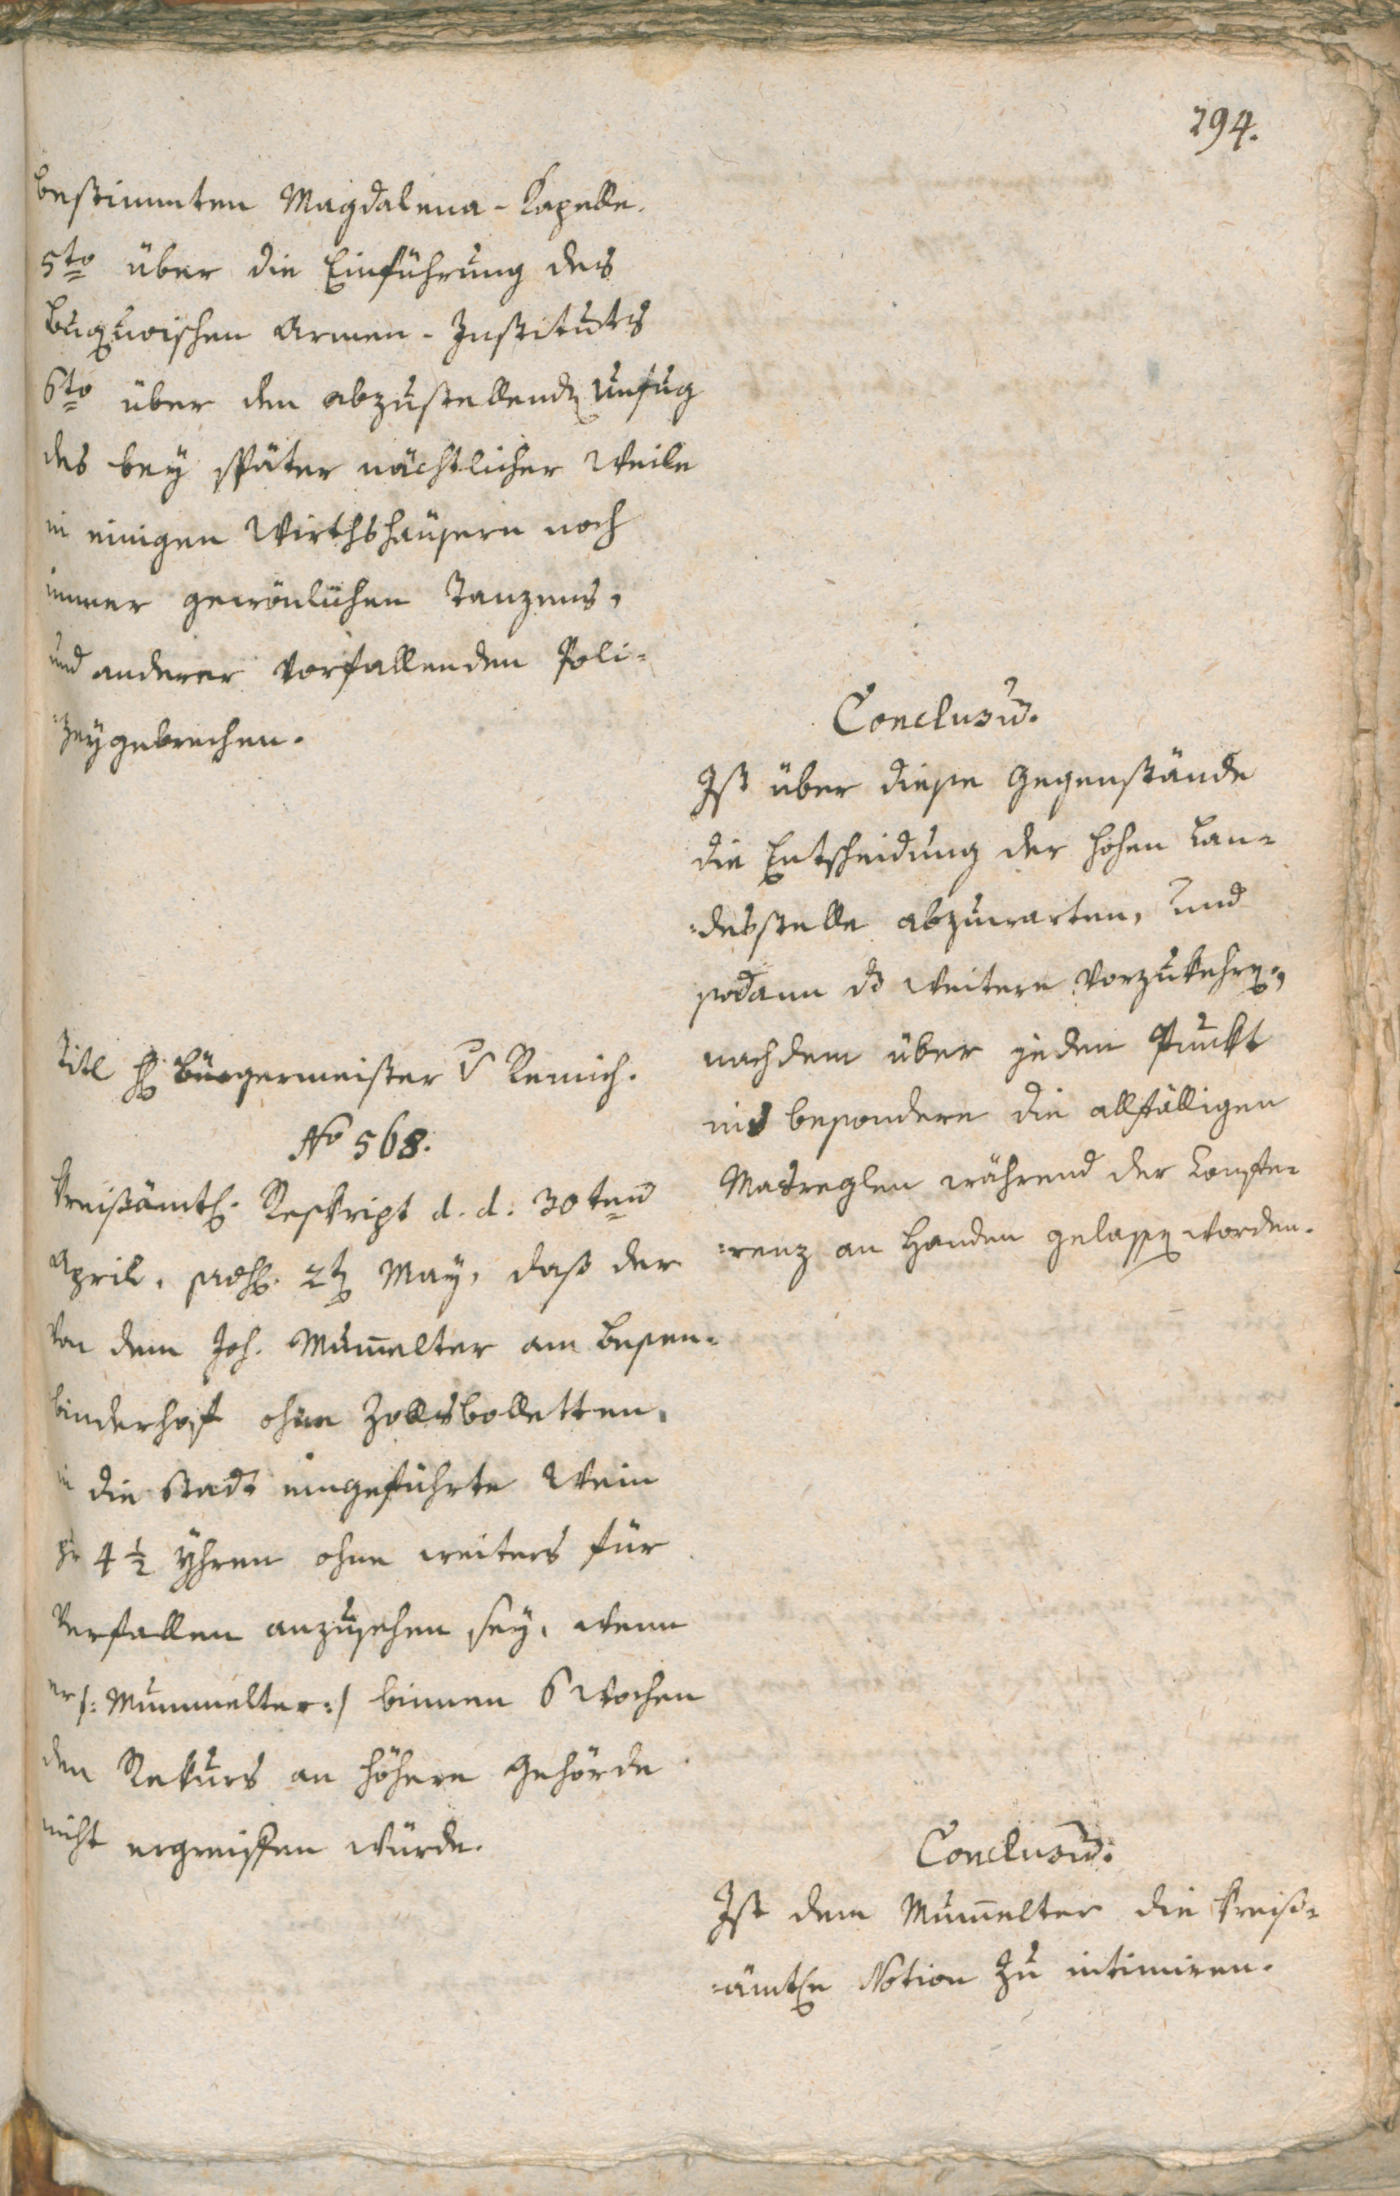 294.
bestimmten Magdalena-Kapelle.
5to über die Einführung des
Buquoischen Armen-Instituts
6to über den abzustellend Unfug
des bey später nächtlicher Weile
in einigen Wirthshäusern noch
immer gewönlichen Tanzens,
und anderer vorfallenden Poli-
-zeygebrechen.
Conclusum.
Ist über diese Gegenstände
die Entscheidung der hohen Lan-
-desstelle abzuwarten, und
sodann ds weitere vorzukehren,
nachdem über jeden Punkt
ins besondere die allfälligen
Masreglen während der Konfe-
-renz an Handen gelassen worden.
Titl H Bürgermeister v Remich.
No 568.
Kreißämtl. Reskript d. d. 30ten
April, 2t May, daß der
von dem Joh. Mumelter am Besen-
binderhof ohne Zollsbolletten
in die Stadt eingeführte Wein
pr 4 1/2 Yhren ohne weiters für
Verfallen anzusehen sey, wenn
er /: Mummelter :/ binnen 6 Wochen
den Rekurs an höhere Gehörde
nicht ergreiffen würde.
Conclusum.
Ist dem Mumelter die Kreiß-
-ämtle Notion zu intimiren.